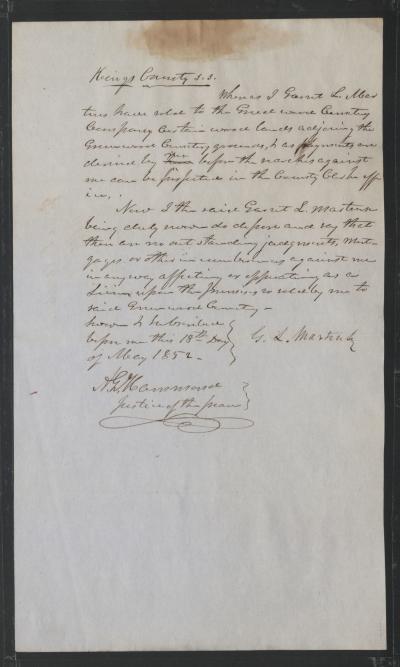 Kings County s.s.
Whereas I Garret L. Mar
tins have sold to the Green wood Cemetery
Company Certain wood lands adjoining the
Greenwood Cemetery grounds, & as payments are
desired by before the searches against
me can be in the County Clerks off
ice,
Now I the said Garret L. Martense
being duly sworn do depose and say that
there are no out standing judgments, Mort
gages or other incumbrances against me
in any way affecting or operating as a
Lien upon the premises so sold by me to
said Greenwood Cemetery -
Sworn & Subscribed
before me this 18th Day
of May 1852 -
G. L. Martense
Hammond
Justice of the peace